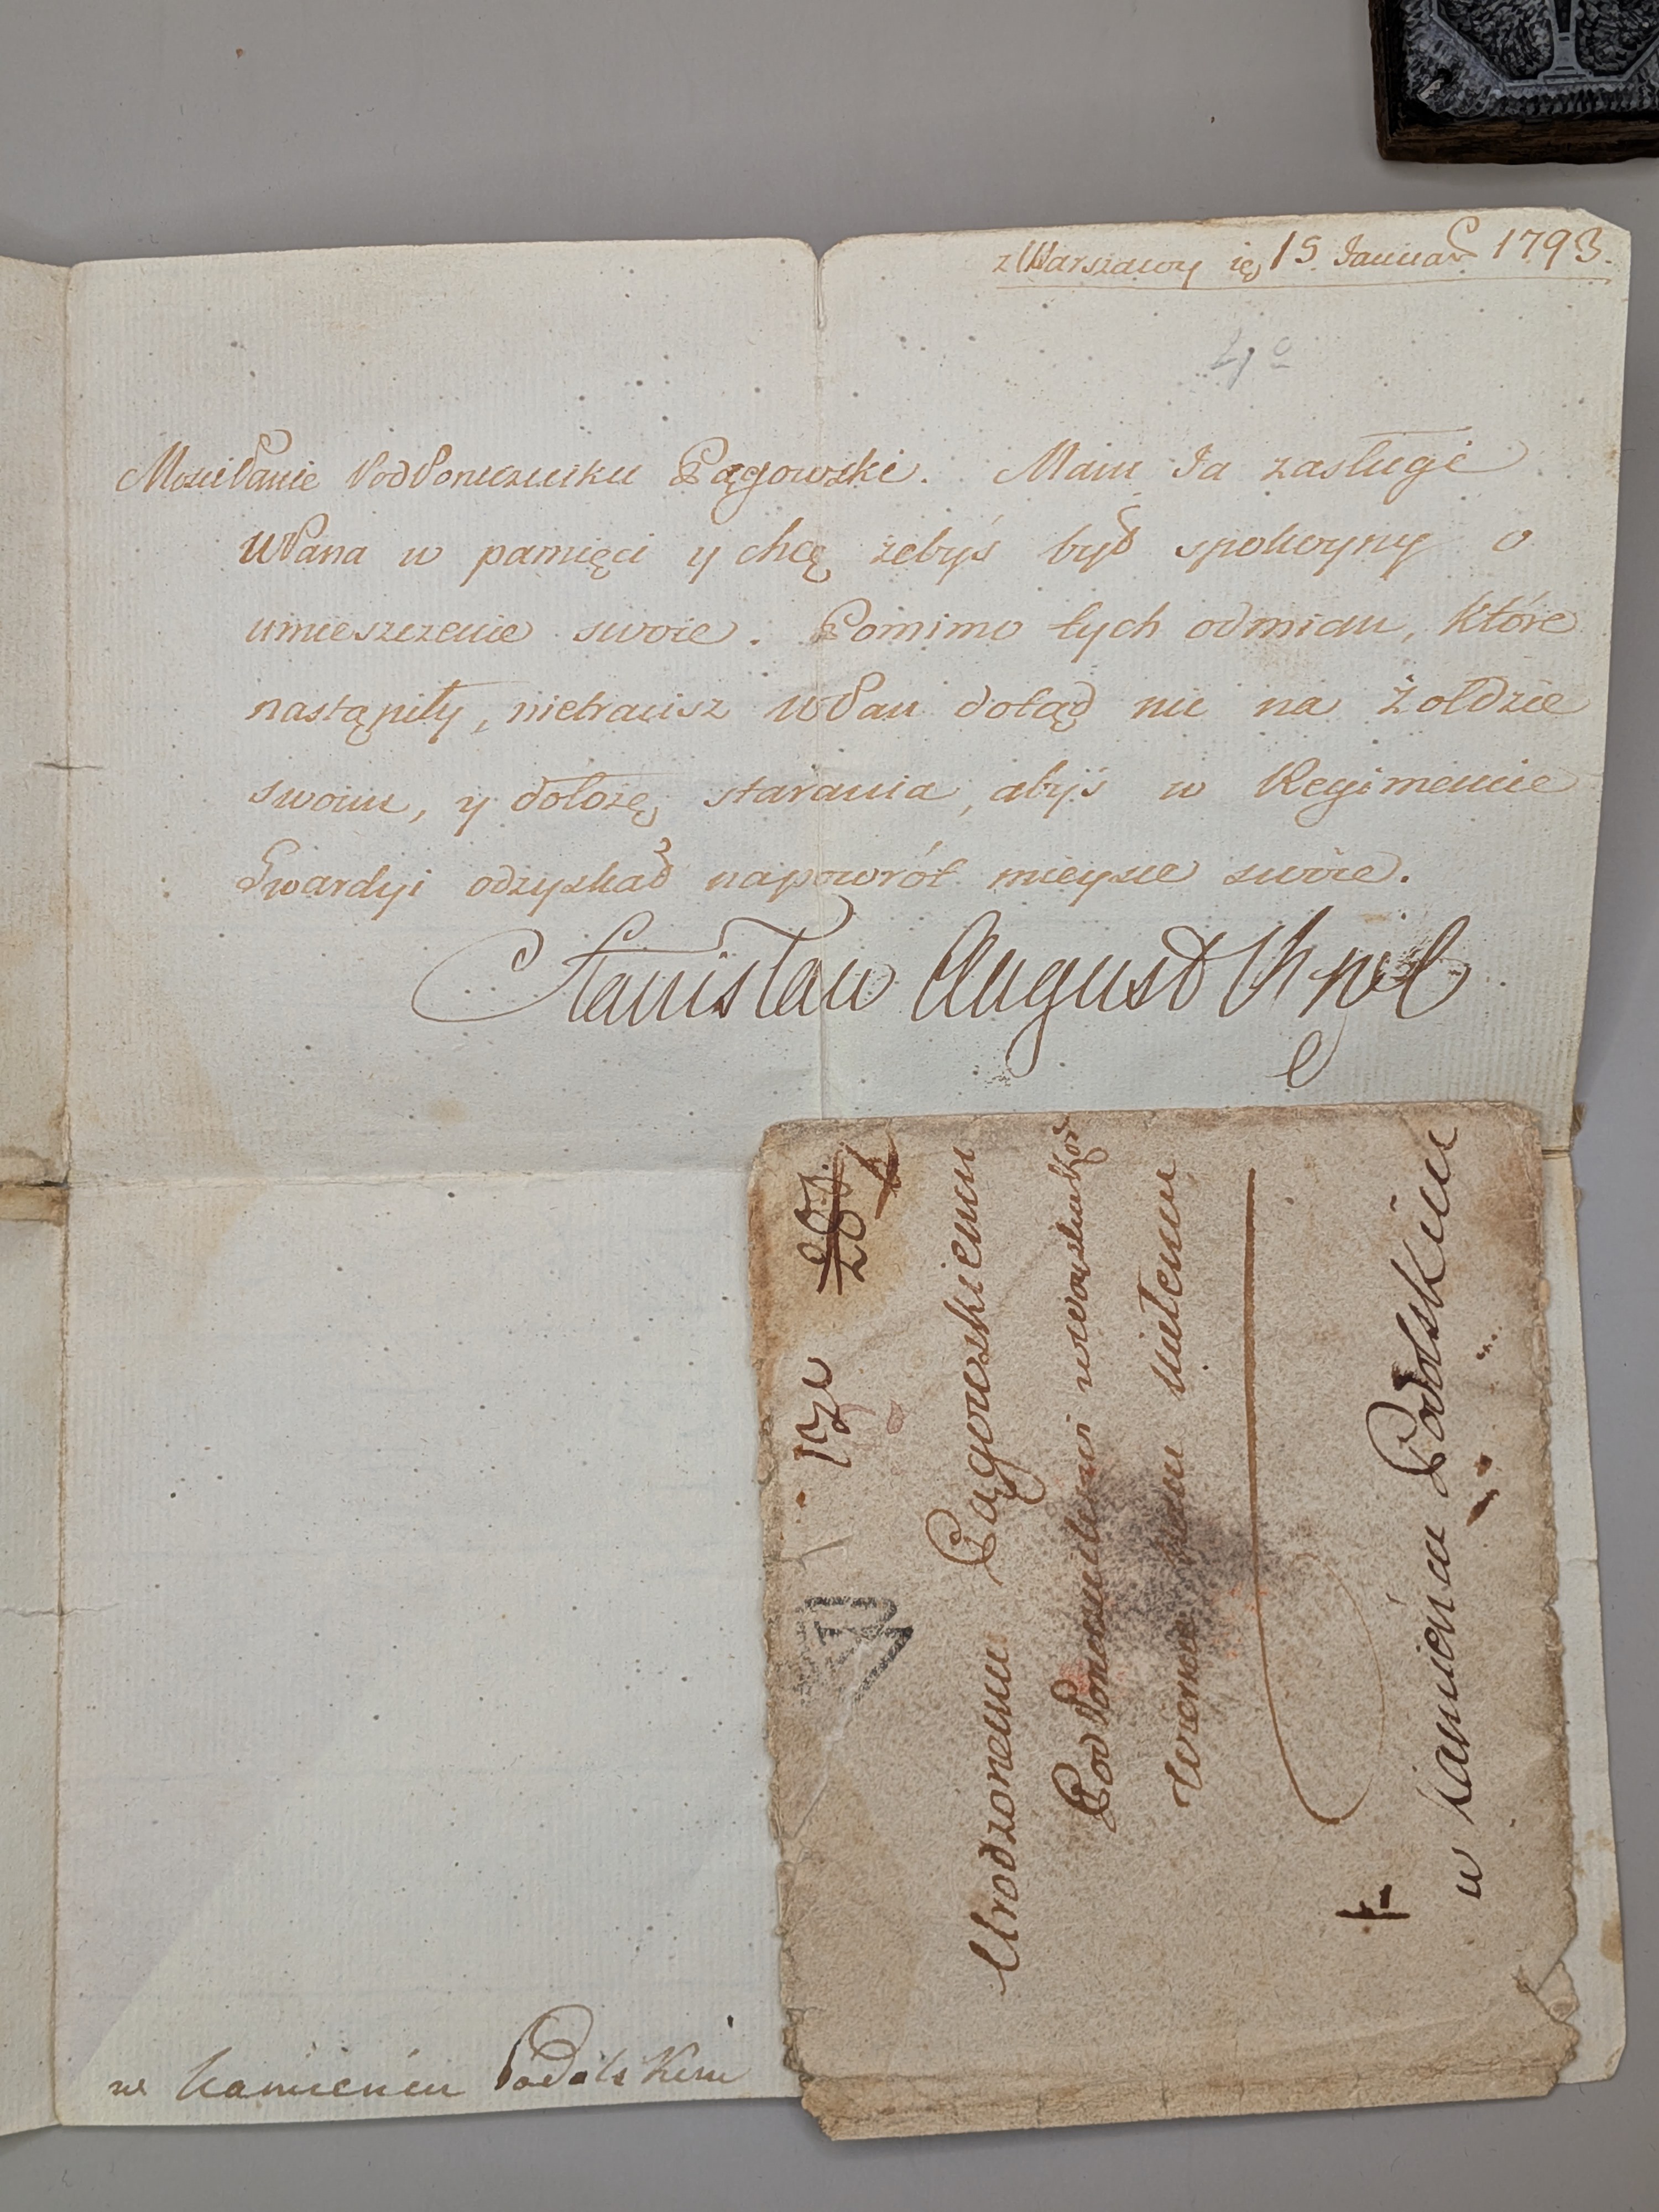 z Warszawy 15. Januar 1793.
4o
Mości Panie Pod Poruczniku Pągowski. Mam Ja zasługi
WPana w pamięci y chcę żebyś był spokoyny o
umieszczenie swoie. Pomimo tych odmian, które
nastąpiły, nietracisz WPan dotąd nic na żołdzie
swoim, y dołożę starania, abyś w Regimencie
Gwardyi odzyskał napowrót mieysce swoie.
Stanisław August Król
Urodzonemu Pągowskiemu
Pod Porucznikowi w woysku Kor
Wiernie Nam miłemu
w Kamieńcu Podolskim
w Kamieńcu Podolskim